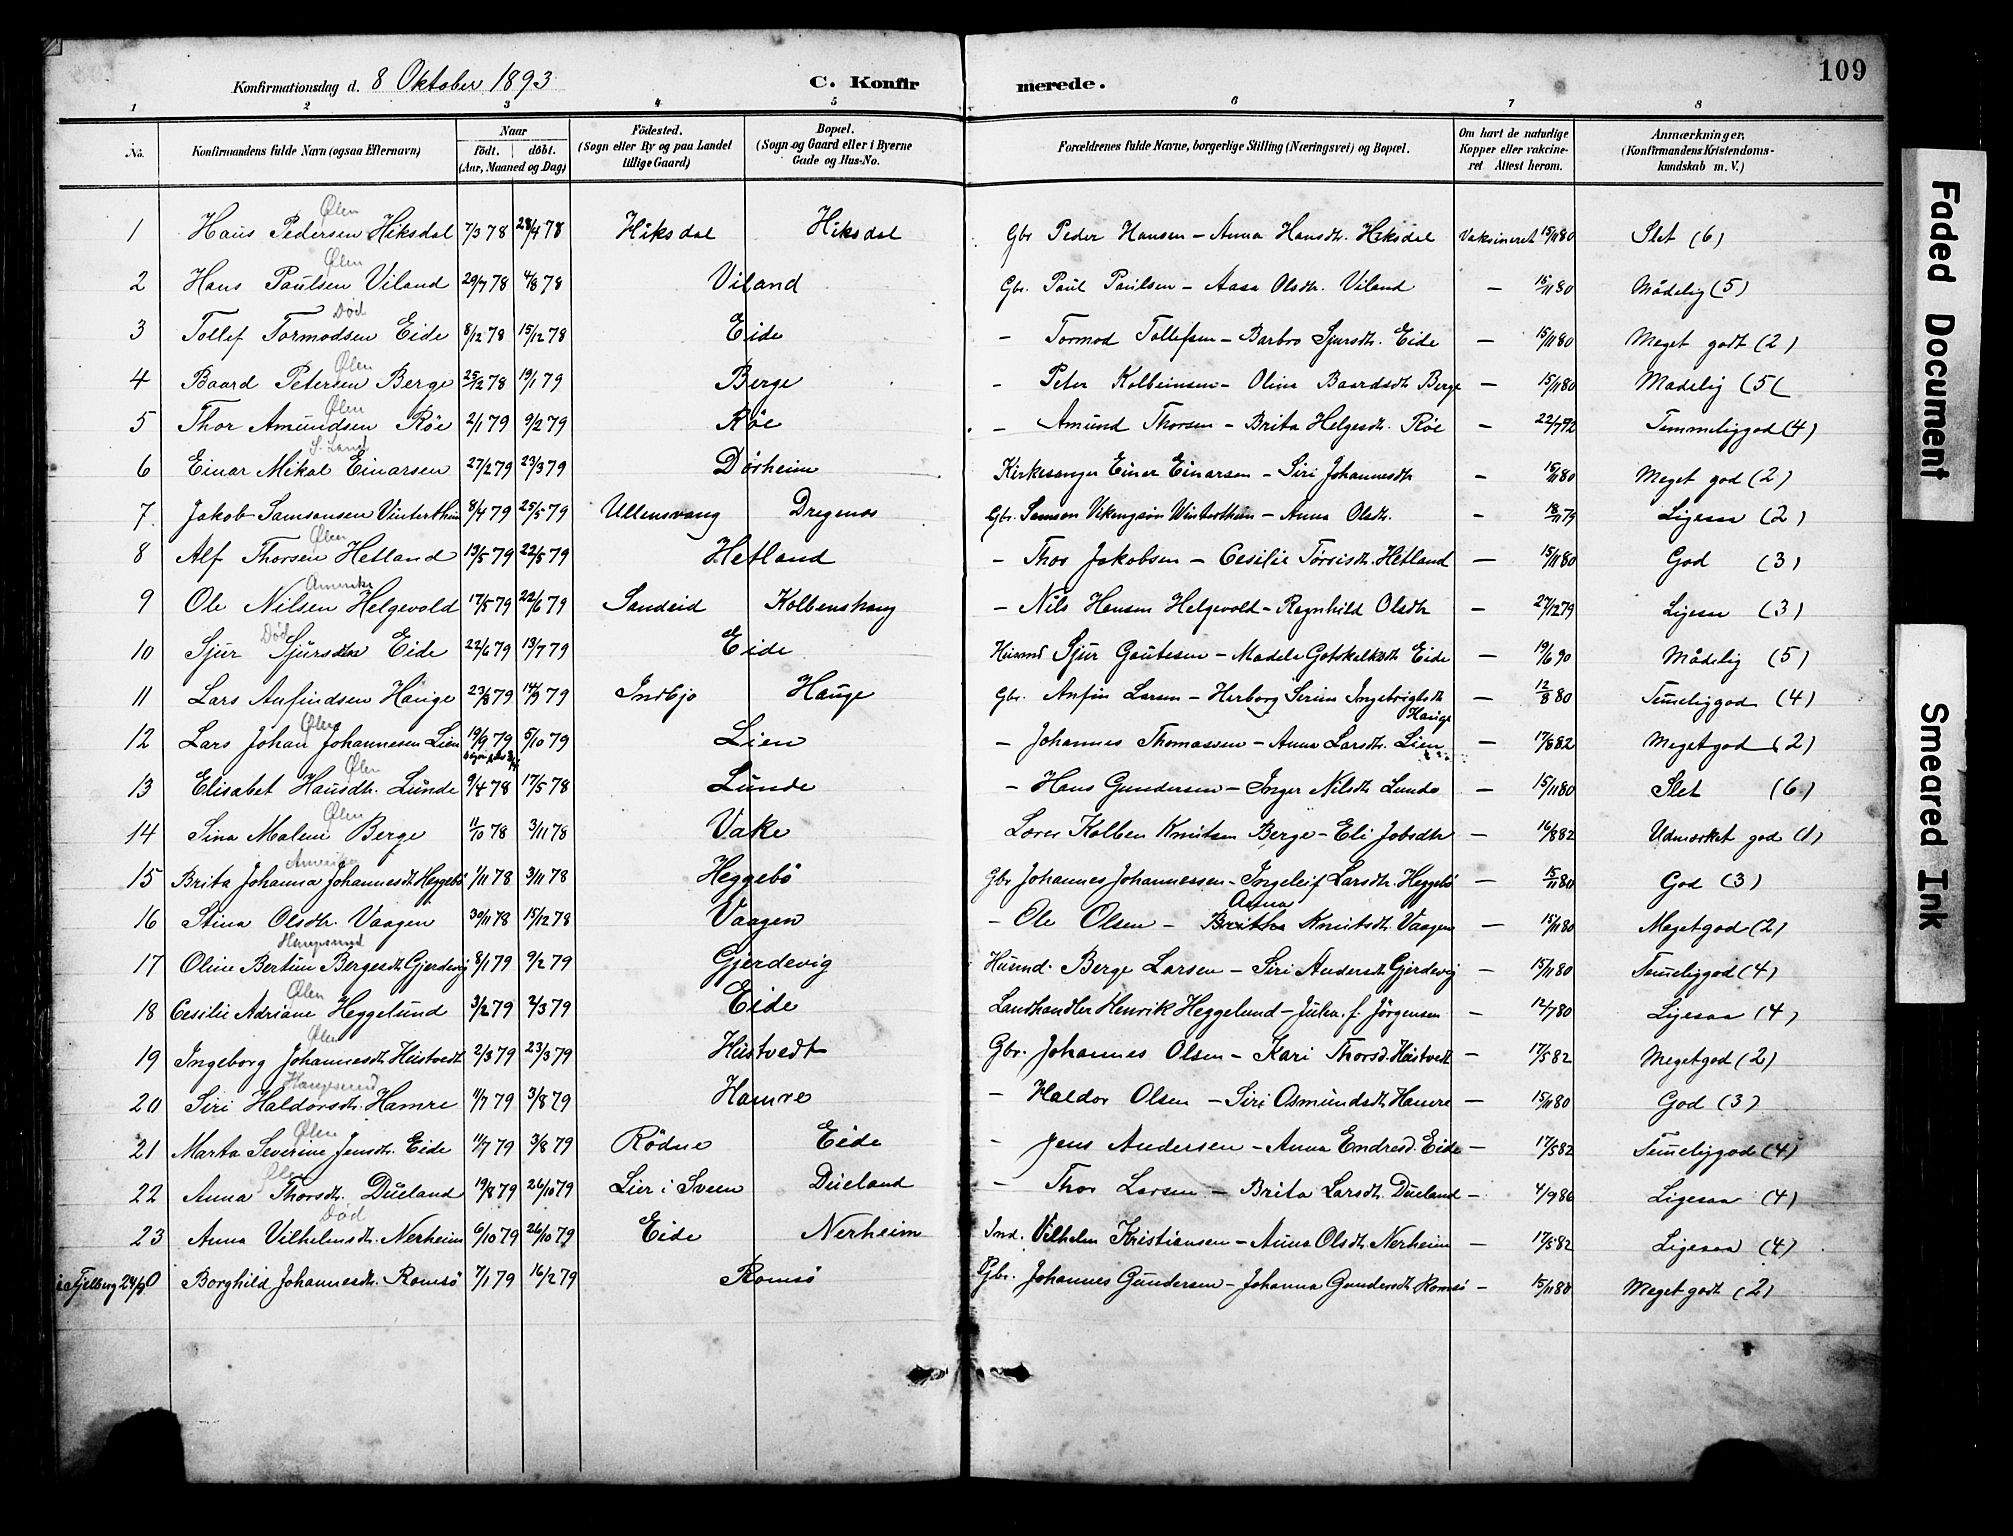 109
Konfirmationsdag d. 8 Oktober 1893
C. Konfirmerede.
1 2 3 4 5 6 7 8
No.
Konfirmandens fulde Navn (ogsaa Efternavn)
Naar
födt. döbt.
(Aar, Maaned og Dag)
Födested.
(Sogn eller By og paa Landet
tillige Gaard)
Bopæl.
(Sogn og Gaard eller i Byerne
Gade og Hus-No.
Forældrenes fulde Navne, borgerlige Stilling (Næringsvei) og Bopæl.
Om havt de naturlige
Kopper eller vakcine-
ret Attest herom.
Anmærkninger.
(Konfirmandens Kristendoms-
kundskab m. V.)
Ølen
1 Hans Pedersen Hiksdal 7/3 78 28/4 78 Hiksdal Hiksdal Gbr Peder Hansen – Anna Hansdtr. Hiksdal Vaksineret 15/11 80 Slet (6)
Ølen
2 Hans Paulsen Viland 29/7 78 4/8 78 Viland Gbr. Paul Paulsen – Aasa Olsdtr. Viland – 15/11 80 Mådelig (5)
Død
3 Tollef Tormodsen Eide 8/12 78 15/12 78 Eide – Tormod Tollefsen – Barbro Sjursdtr. Eide – 15/11 80 Meget godt (2)
Ølen
4 Baard Petersen Berge 25/12 78 19/1 79 Berge – Peter Kolbeinsen – Olina Baardsdtr Berge – 15/11 80 Madelig (5(
Ølen
5 Thor Amundsen Röe 2/1 79 9/2 79 Röe – Amund Thorsen – Brita Helgesdtr. Röe – 22/7 92 Temmeliggod (4)
S. Land
6 Einar Mikal Einarsen 27/2 79 23/3 79 Dörheim Kirkesanger Einer Einarsen – Siri Johannesdtr – 15/11 80 Meget god (2)
7. Jakob Samsonsen Vinterthun 8/4 79 25/5 79 Ullensvang Dregenes Gbr. Samson Vikengson Wintertthun – Anna Olsdtr. – 18/11 79 Ligesaa (2)
Ølen
8 Alf Thorsen Hetland 13/5 79 22/5 79 Hetland – Thor Jakobsen – Cesilie Torrisdtr. Hetland – 15/11 80 God (3)
Amerika
9 Ole Nilsen Helgevold 17/5 79 22/6 79 Sandeid Kolbenshaug – Nils Hansen Helgevold – Ragnhild Olsdtr – 27/12 79 Ligesaa (3)
Död
10 Sjur Sjursen Eide 22/6 79 13/7 79 Eide Husmd Sjur Gautesen – Madele Gotskalksdtr Eide – 19/6 90 Mådelig (5)
11 Lars Anfindsen Hauge 23/8 79 14/9 79 Indbjo Hauge Gbr. Anfin Larsen – Herborg Serina Ingebrigtsdtr – 12/8 80 Temeliggod (4)
Hauge
Ølen
12 Lars Johan Johannesen Lien 19/9 79 5/10 79 Lien – Johannes Thomassen – Anna Larsdtr. Lien – 17/8 82 Megetgod (2)
Ølen
13 Elisabet Hansdtr. Lunde 9/4 78 17/5 78 Lunde – Hans Gundersen – Inger Nilsdtr Lunde – 15/11 80 Slet (6)
Ølen
14 Sina Malene Berge 11/10 78 3/11 78 Vake Lærer Kolben Knutsen Berge – Eli Jobsdtr – 16/8 82 Udmærket god (1)
Amerika
15 Brita Johanna Johannesdtr Heggebö 1/11 78 3/11 78 Heggebö Gbr Johannes Johannessen – Ingeleif Larsdtr. Heggebö – 15/11 80 God (3)
Anna
16 Stina Olsdtr. Vaagen 30/11 78 15/12 78 Vaagen – Ole Olsen – Britha Knutsdtr. Vaagen – 15/11 80 Megetgod (2)
Haugesund
17 Oline Bertine Bergesdtr Gjerdevig 8/1 79 9/2 79 Gjerdevig Husmd. Berge Larsen – Siri Andersdtr Gjerdevig – 15/11 80 Temeliggod (4)
Ølen
18 Cesilie Adriane Heggelund 3/2 79 2/3 79 Eide Landhandler Henrik Heggelund – Julia f. Jörgensen – 12/7 80 Ligesaa (4)
Ølen
19 Ingeborg Johannesdtr Hustvedt 2/3 79 23/3 79 Hustvedt Gbr. Johannes Olsen – Kari Thorsd. Hustvedt – 17/5 82 Megetgod (2)
Haugesund
20 Siri Haldorsdtr. Hamre 11/7 79 3/8 79 Hamre – Haldor Olsen – Siri Osmundsdtr Hamre – 15/11 80 God (3)
Ølen
21 Marta Severine Jensdtr. Eide 11/7 79 3/8 79 Rödne Eide – Jens Andersen – Anna Endresd. Eide – 17/5 82 Temeliggod (4)
Ølen
22 Anna Thorsdtr. Dueland 19/8 79 26/10 79 Lier i Sveen Dueland – Thor Larsen – Brita Larsdtr. Dueland – 4/9 86 Ligesaa (4)
Död
23 Anna Vilhelmsdtr. Nerheim 6/10 79 26/10 79 Eide Nerheim Ind. Vilhelm Kristiansen – Anna Olsdtr Nerheim – 17/5 82 Ligesaa (4)
Fjelberg 24/9 Borghild Johannesdtr. Romsö 7/1 79 16/2 79 Romsö Gbr. Johannes Gundersen – Johanna Gundersdtr Romsö – 15/11 80 Meget godt (2)
Faded Document
Smeared Ink